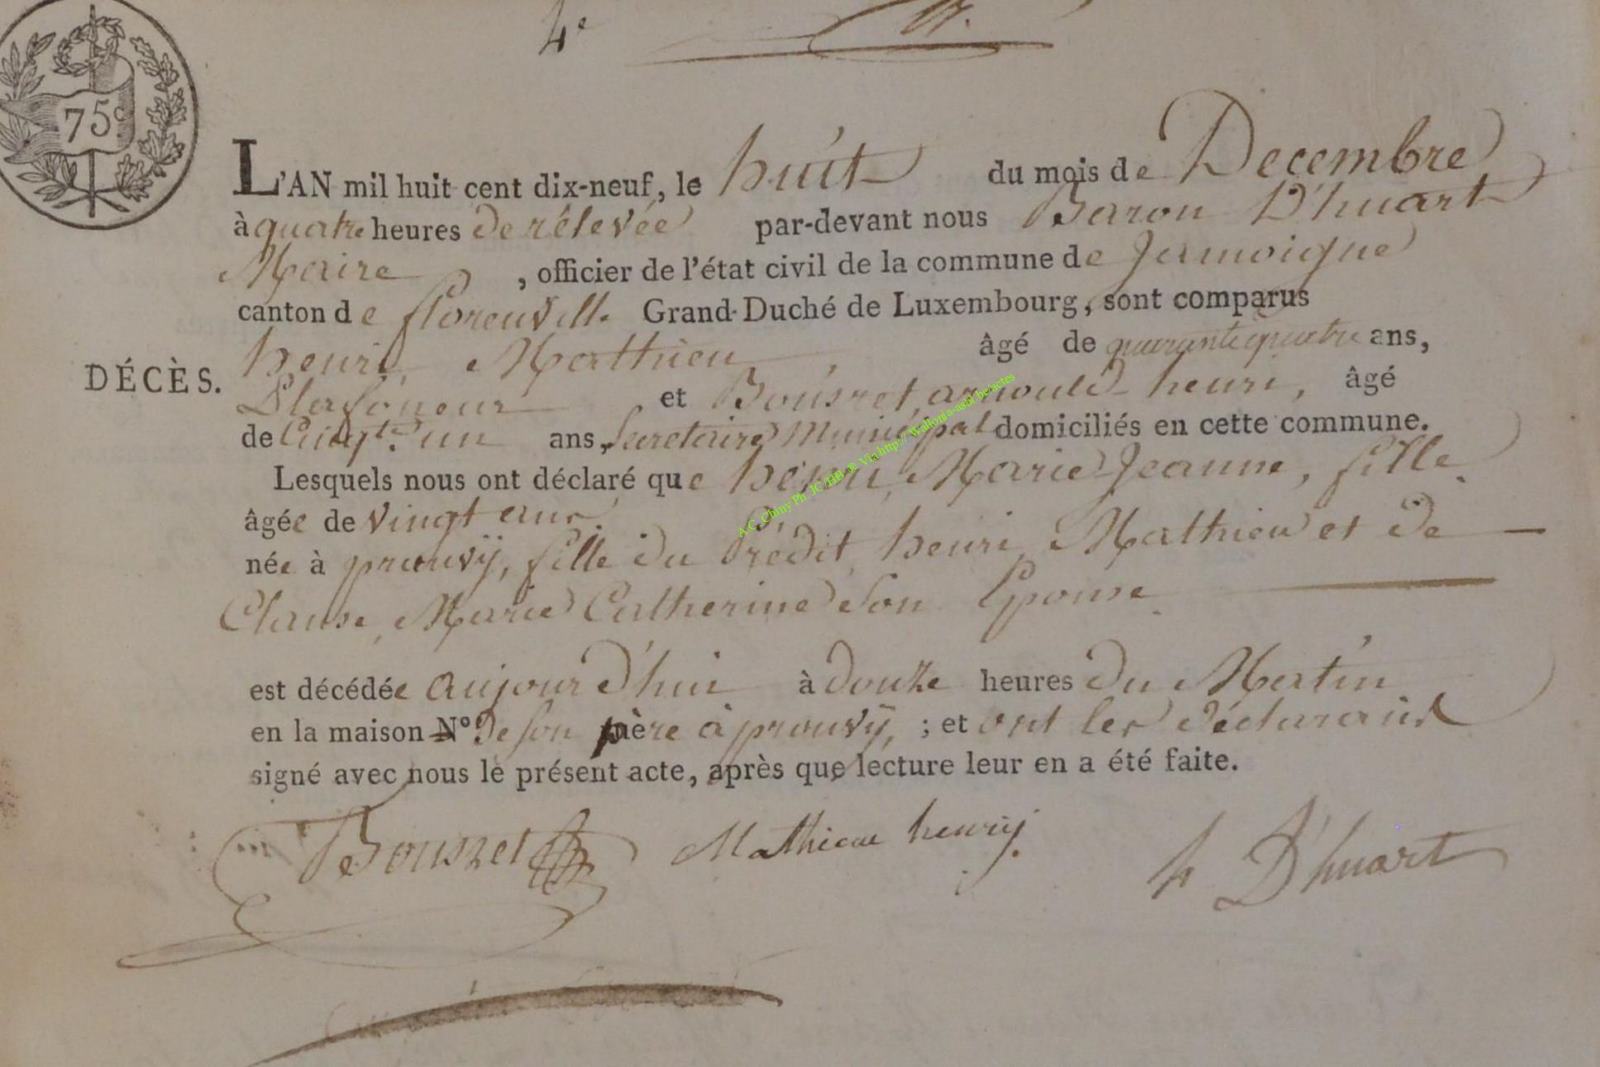 4e
75c
L'AN mil huit cent dix-neuf, le huit du mois de Decembre
à quatre heures de rélevée par-devant nous Baron D'huart
Maire , officier de l'état civil de la commune de Jamoigne
canton de florenville Grand-Duché de Luxembourg, sont comparus
henri, Mathieu âgé de quarantequatre ans,
DÉCÈS.
Plafoneur et Bousret, arnould henri, âgé
de Cinqte un ans, Secretaire Municipal domiciliés en cette commune.
Lesquels nous ont déclaré que henri, Marie Jeanne, fille
âgée de vingt ans
née à prouvÿ, fille du Prédit, henri, Mathieu et de
Clause, Marie Catherine Son Epouse
est décédée aujourd'hui à douze heures du Matin
en la maison N° de son père à prouvÿ, ; et ont les déclarans
signé avec nous le présent acte, après que lecture leur en a été faite.
Bousret Mathieu henrij. h D'huart